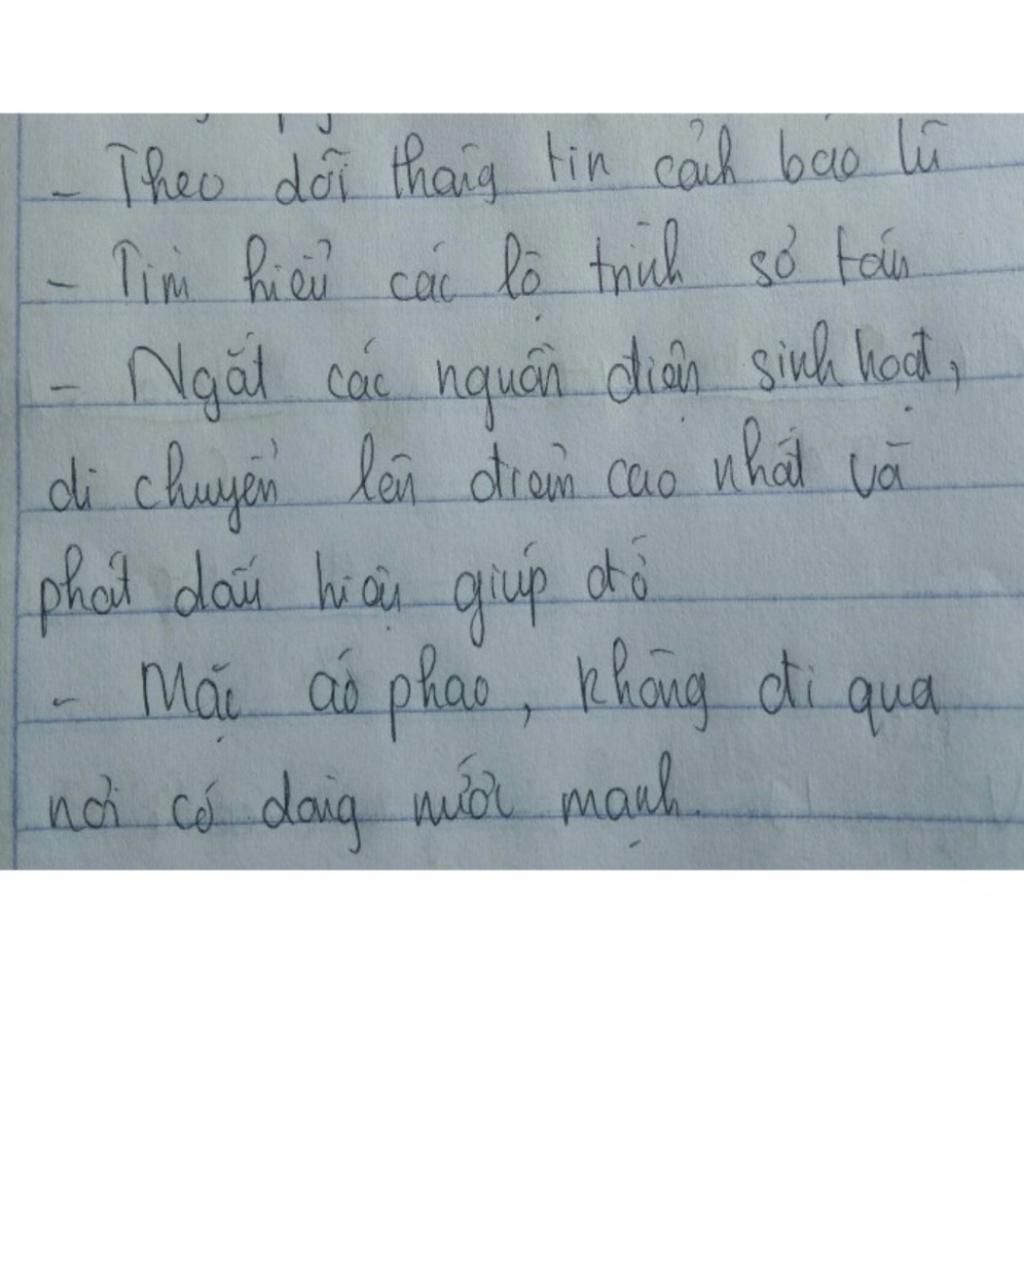 - Theo dõi thông tin cảnh báo lũ
- Tìm hiểu các lộ trình sơ tán
- Ngắt các nguồn điện sinh hoạt,
di chuyển lên điểm cao nhất và
phát dấu hiệu giúp đỡ
- Mặc áo phao, không đi qua
nơi có dòng nước mạnh.